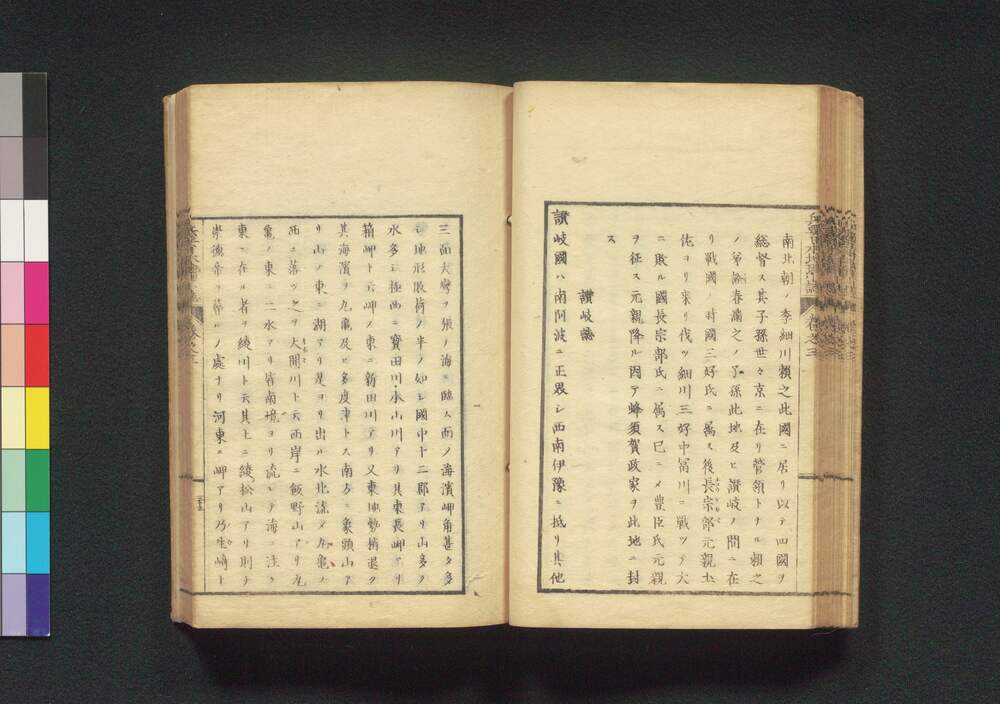 南北朝ノ季細川賴之此國ニ居リ以テ四國ヲ
総督ス其子孫世々京ニ在リ管領トナル賴之
ノ弟詮春滿之ノ子孫此地及ヒ讃岐ノ間ニ在
リ戰國ノ時國三好氏ニ属ス後長宗部元親土
佐ヨリ来リ伐ツ細川三好中冨川ニ戰ツテ大
ニ敗ル國長宗部氏ニ属ス已ニ〆豊臣氏元親
ヲ征ス元親降ル因テ蜂須賀政家ヲ此地ニ封
ス
讃岐誌
讃岐國ハ南阿波ニ正界シ西南伊豫ニ抵リ其他
三面大彎ヲ張ノ海ニ臨ム而ノ海濱岬角甚タ多
地形敗荷ノ半ノ如シ國中十二郡アリ山多ク
水多シ極西ニ寳田川小山川アリ其東長岬アリ
箱岬ト云岬ノ東ニ新田川アリ又東地勢稍退ク
其海濱ヲ丸亀及ヒ多度津トス南方ニ象頭山ア
リ山ノ東ニ湖アリ是ヨリ出ル水北流〆丸亀ノ
西ニ落ツ之ヲ大間川ト云西岸ニ飯野山アリ丸
亀ノ東ニ二水アリ皆南境ヨリ流レテ海ニ注ク
東ニ在ル者ヲ綾川ト云其上ニ綾松山アリ則チ
崇德帝ヲ葬ルノ處ナリ河東ニ岬アリ乃生崎ト